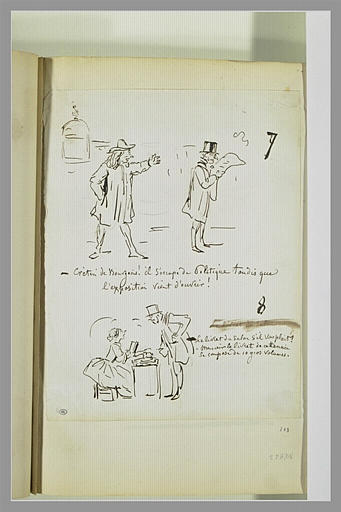 7
— Crétin de Bourgeois! il s'occupe de Politique tandis que
l'exposition vient d'ouvrir!
8
— Le livret du Salon s'il vous plait?
— Monsieur le livret de cette année
se compose de 10 gros volumes.